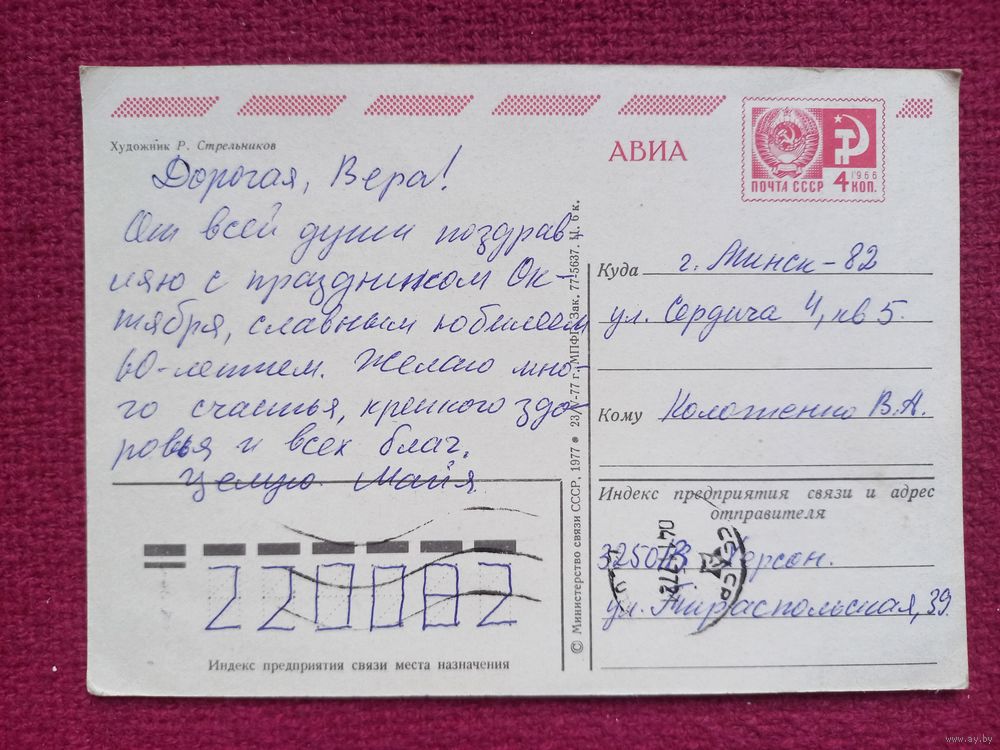 Художник Р. Стрельников
АВИА
ПОЧТА СССР
1966
4 КОП.
Дорогая, Вера!
От всей души поздрав
ляю с праздником Ок-
тября, славным юбилеем
60-летием. Желаю мно-
го счастья, крепкого здо-
ровья и всех благ.
Целую Майя.
Куда г. Минск-82
ул. Сердича 4, кв 5.
Кому Коложенко В.А.
Индекс предприятия связи и адрес
отправителя
Херсон.
ул. Тираспольская, 39.
220082
Индекс предприятия связи места назначения
© Министерство связи СССР, 1977 23/V-77 г. МПФГ. Зак. 77-5637. Ц. 6 к.
www.ay.by